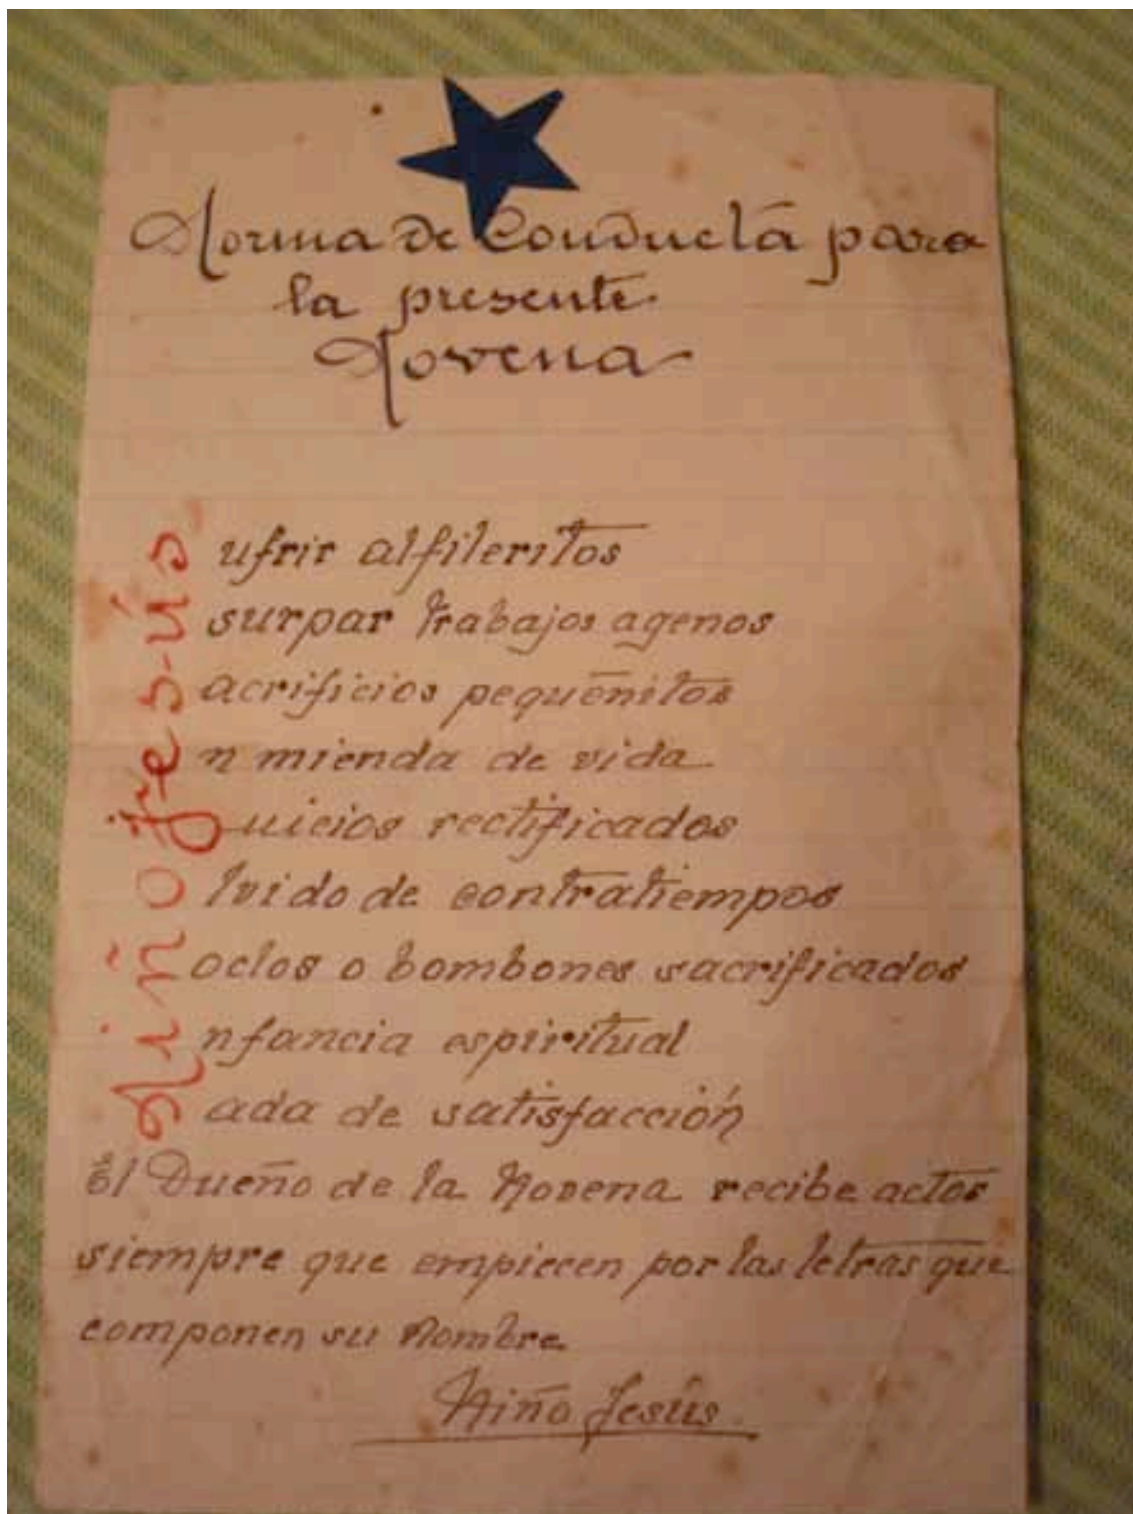 Norma de Conducta para
la presente
Novena
sufrir alfileritos
úsurpar trabajos agenos
sacrificios pequeñitos
en mienda de vida
Juicios rectificados
olvido de contratiempos
ñoclos o bombones sacrificados
infancia espiritual
Nada de satisfacción
El Dueño de la Novena recibe actos
siempre que empiecen por las letras que
componen su Nombre
Niño Jesús.